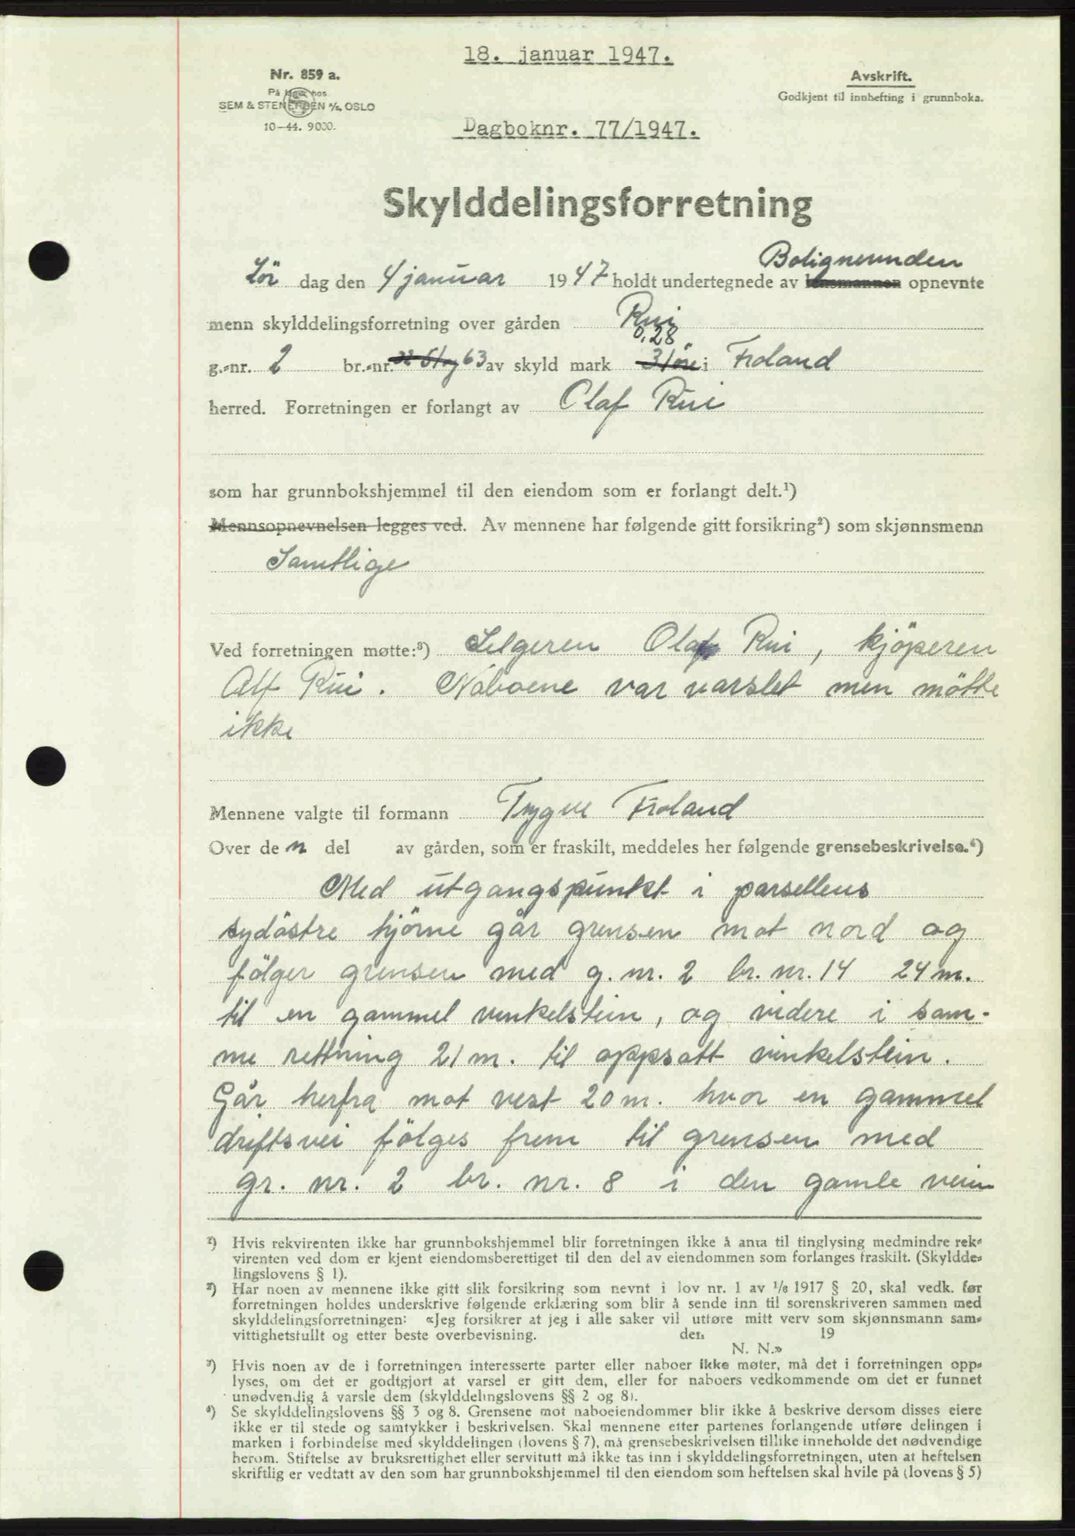 18. januar 1947.
Nr. 859 a.
På lager hos
SEM & STENERSEN A/S, OSLO
10-44. 9000.
Avskrift.
Godkjent til innhefting i grunnboka.
Dagboknr. 77/1947.
Skylddelingsforretning
Bolignevnden
Lör dag den 4 januar 1947 holdt undertegnede av lensmannen opnevnte
menn skylddelingsforretning over gården Rui
0,28
g.-nr. 2 br.-nr. 63 av skyld mark 31 öre i Froland
herred. Forretningen er forlangt av Olaf Rui
som har grunnbokshjemmel til den eiendom som er forlangt delt.¹)
Mennsopnevnelsen legges ved. Av mennene har følgende gitt forsikring²) som skjønnsmenn
Samtlige
Ved forretningen møtte:³) Selgeren Olaf Rui, kjöperen
Alf Rui. Naboene var varslet men mötte
ikke
Mennene valgte til formann Trygve Froland
Over den del av gården, som er fraskilt, meddeles her følgende grensebeskrivelse.⁴)
Med utgangspunkt i parsellens
sydöstre hjörne går grensen mot nord og
fölger grensen med g. nr. 2 br. nr. 14 24 m.
til en gammel vinkelstein, og videre i sam-
me rettning 21 m. til oppsatt vinkelstein.
Går herfra mot vest 20 m. hvor en gammel
driftsvei fölges frem til grensen med
gr. nr. 2 br. nr. 8 i den gamle veien
¹) Hvis rekvirenten ikke har grunnbokshjemmel blir forretningen ikke å anta til tinglysing medmindre rek-
virenten ved dom er kjent eiendomsberettiget til den del av eiendommen som forlanges fraskilt. (Skyldde-
lingslovens § 1).
²) Har noen av mennene ikke gitt slik forsikring som nevnt i lov nr. 1 av 1/6 1917 § 20, skal vedk. før
forretningen holdes underskrive følgende erklæring som blir å sende inn til sorenskriveren sammen med
skylddelingsforretningen: «Jeg forsikrer at jeg i alle saker vil utføre mitt verv som skjønnsmann sam-
vittighetsfullt og etter beste overbevisning. den 19
N. N.»
³) Hvis noen av de i forretningen interesserte parter eller naboer ikke møter, må det i forretningen opp-
lyses, om det er godtgjort at varsel er gitt dem, eller for naboers vedkommende om det er funnet
unødvendig å varsle dem (skylddelingslovens §§ 2 og 8).
⁴) Se skylddelingslovens §§ 3 og 8. Grensene mot naboeiendommer blir ikke å beskrive dersom disses eiere
ikke er til stede og samtykker i beskrivelsen. Skal mennene etter partenes forlangende utføre delingen i
marken i forbindelse med skylddelingen (lovens § 7), må grensebeskrivelsen tillike inneholde det nødvendige
herom. Stiftelse av bruksrettighet eller servitutt må ikke tas inn i skylddelingsforretningen, uten at heftelsen
skriftlig er vedtatt av den som har grunnbokshjemmel til den eiendom som heftelsen skal hvile på (lovens § 5)